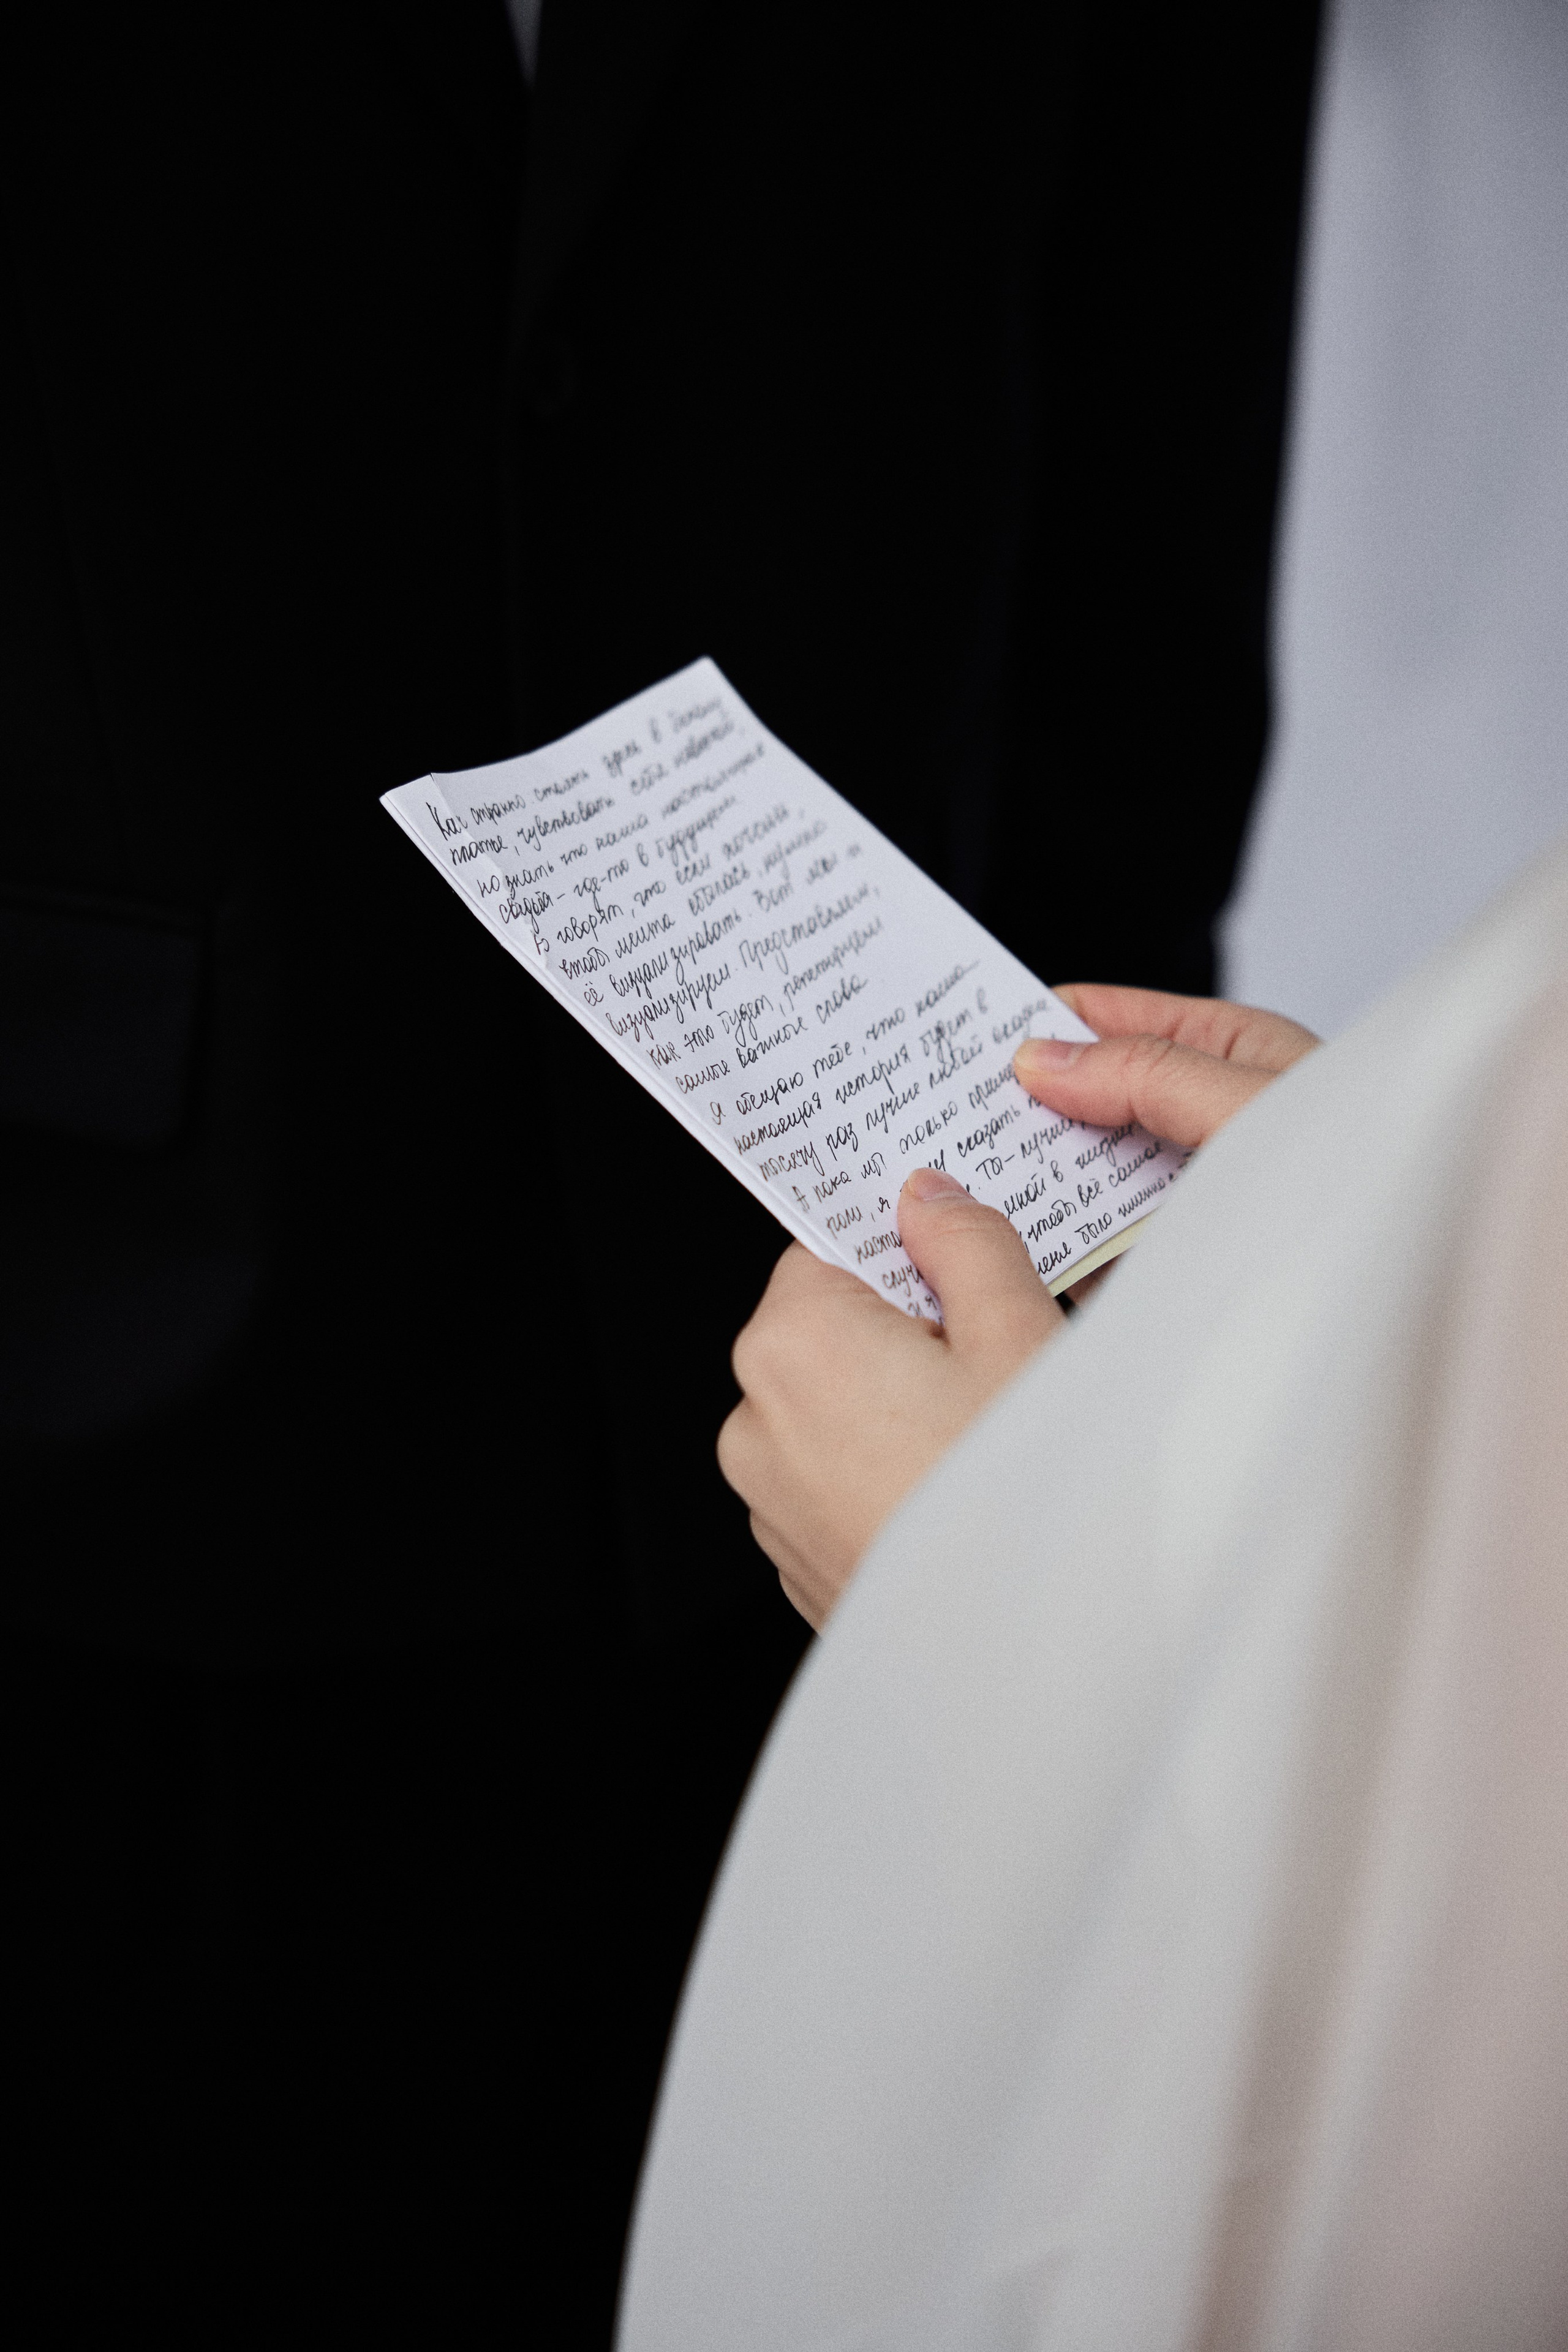 Как странно стоять здесь в белом
платье, чувствовать себя невестой,
но знать что наша настоящая
свадьба - где-то в будущем
Но говорят, что если хочешь,
чтобы мечта сбылась, нужно
её визуализировать. Вот мы и
визуализируем. Представляем,
как это будет, репетируем
самые важные слова
Я обещаю тебе, что наша
настоящая история будет в
тысячу раз лучше любой сказки
А пока мы только
я сказать
Ты - лучшее
случ мной в жизни
И я чтобы всё самое
меня было именно с